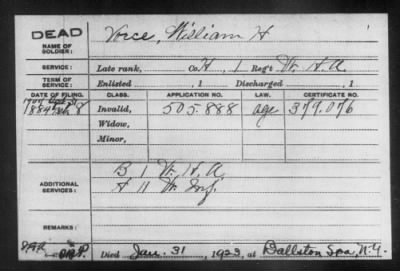 DEAD
NAME OF SOLDIER:
Vorce, William H
SERVICE:
Late rank, Co. H, 1 Reg't Vt. H. A.
TERM OF SERVICE
Enlisted , 1 Discharged , 1
DATE OF FILING. CLASS. APPLICATION NO. LAW. CERTIFICATE NO.
1884 8 Invalid, 505.888 age 379.076
Widow,
Minor,
ADDITIONAL SERVICES:
B 1 Vt. H. A
H 11 Vt. Inf.
REMARKS:
Died Jan. 31 , 1923, at Ballston Spa, N.Y.